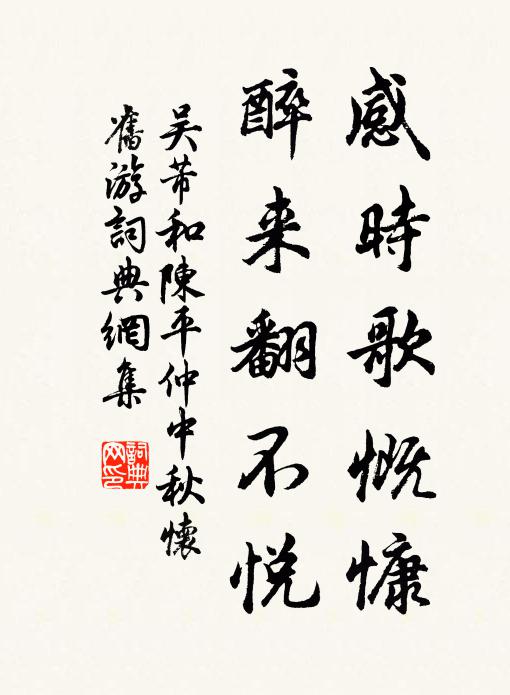 感時歌慨慷
醉来翻不悦
吴芾和陳平仲中秋懷
舊游詞典網集
詞典网印